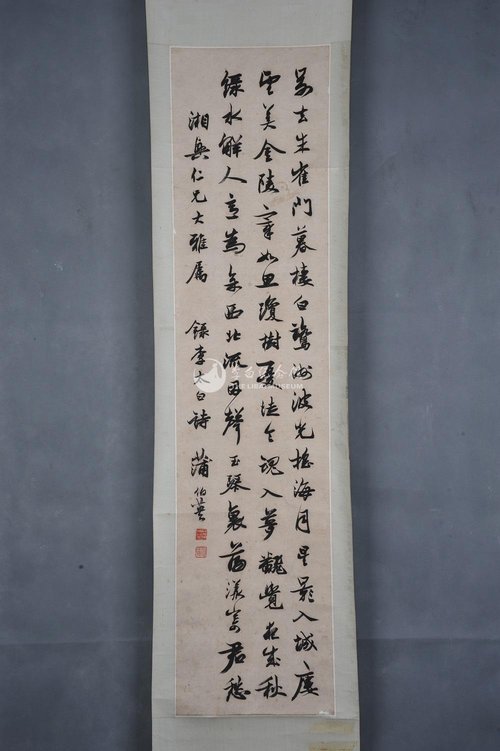 去朱雀門暮棲白鷺洲波光搖海月星影入城廔
望美金陵宰如思瓊樹憂徒令魂入夢翻覺夜成秋
綠水解人意為余西北流因聲玉琴裏蕩漾寄君愁
湘仁兄大雅屬 錄李太白詩 蒲伯英
李白纪念馆
THE LIBAI MUSEUM